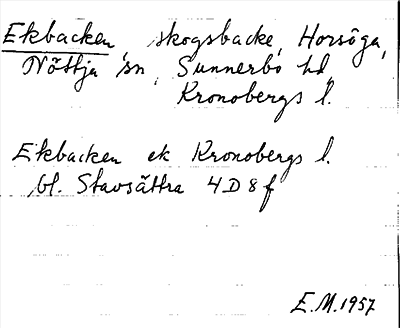 Ekbacken, skogsbacke, Horsöga,
Nöttja sn, Sunnerbo hd,
Kronobergs l.
Ekbacken ek Kronobergs l.
bl. Stavsättra 4D8f
E.M.1957